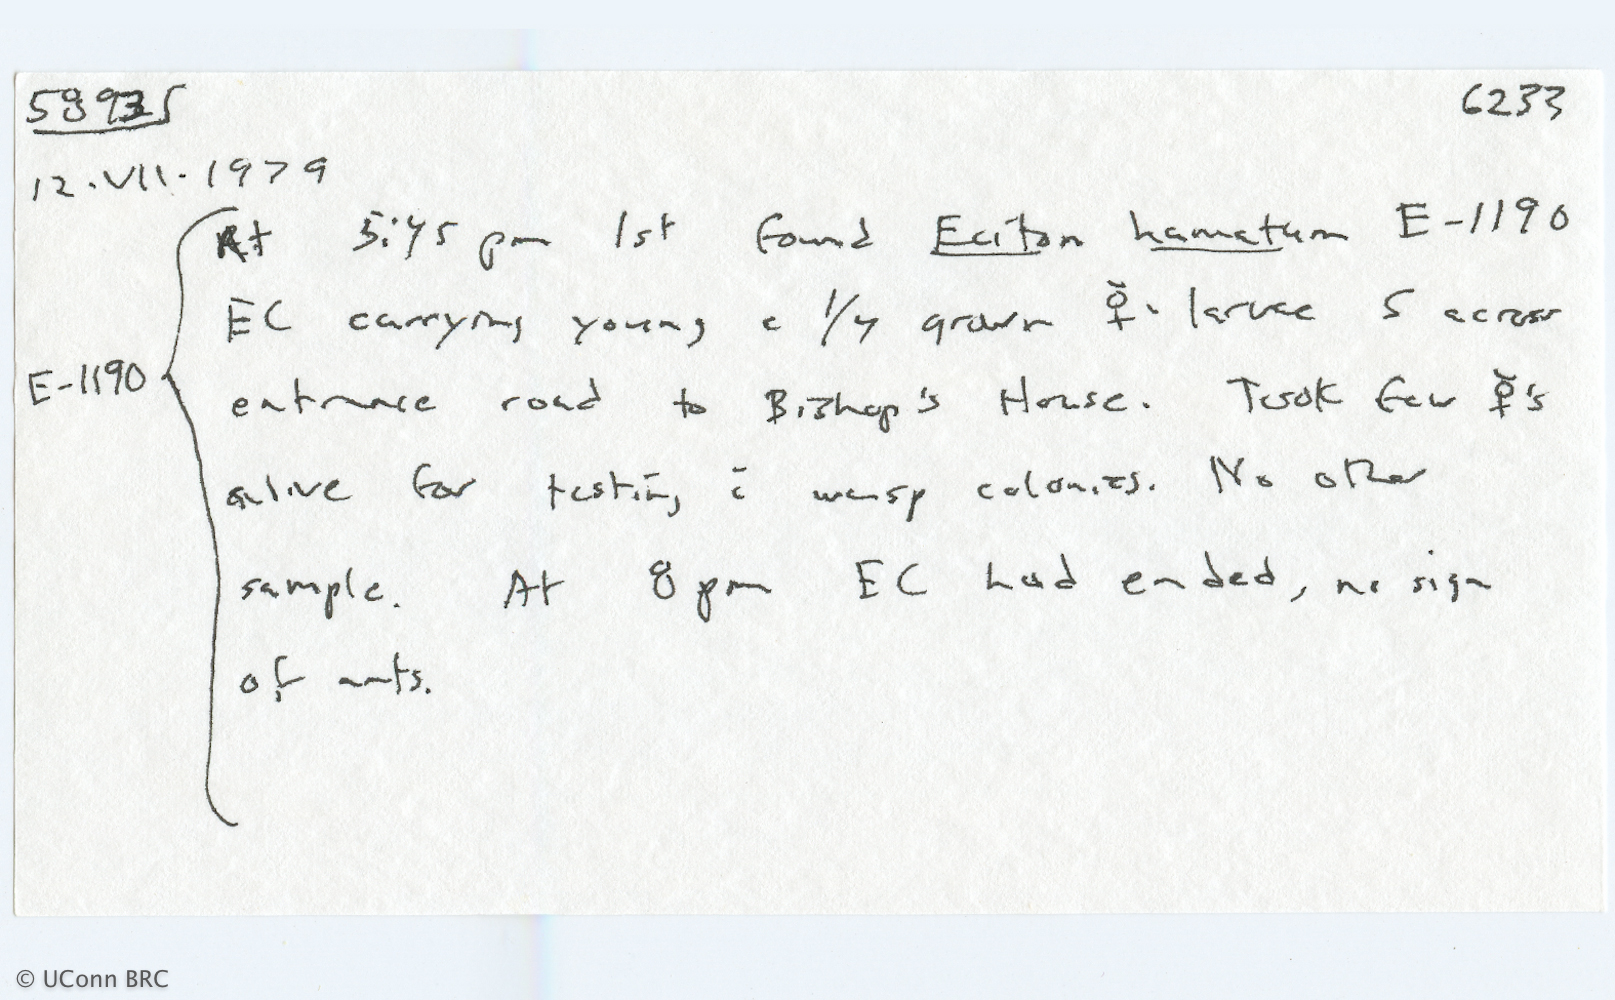 58935
6233
12.VII.1979
At 5:45 pm 1st found Eciton hamatum E-1190
EC carrying young c 1/4 grown ☿. larvae S across
E-1190
entrance road to Bishop's House. Took few ☿'s
alive for testing c̄ wasp colonies. No other
sample. At 8 pm EC had ended, no sign
of ants.
© UConn BRC